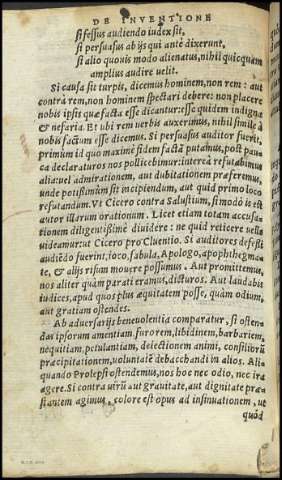 DE INVENTIONE
si fessus audiendo iudex sit,
si persuasus ab ijs qui antè dixerunt,
si alio quouis modo alienatus, nihil quicquam
amplius audire uelit.
Si causa sit turpis, dicemus hominem, non rem: aut
contrà rem, non hominem spectari debere: non placere
nobis ipsis quæ facta esse dicantur: esse quidem indigna
& nefaria. Et ubi rem uerbis auxerimus, nihil simile à
nobis factum esse dicemus. Si persuasus auditor fuerit,
primùm id quo maximè fidem factã putamus, post pau
ca declaraturos nos pollicebimur: intereà refutabimus
aliquid: uel admirationem, aut dubitationem præferemus,
unde potissimùm sit incipiendum, aut quid primo loco
refutandum. Vt Cicero contra Salustium, si modò is est
autor illarum orationum. Licet etiam totam accusa
tionem diligentissimè diuidere: ne quid reticere uelle
uideamur: ut Cicero pro Cluentio. Si auditores defessi
audiẽdo fuerint, ioco, fabula, Apologo, apophthegma
te, & alijs risum mouere possumus. Aut promittemus,
nos aliter quàm parati eramus, dicturos. Aut laudabis
iudices, apud quos plus æquitatem posse, quàm odium,
aut gratiam ostendes.
Ab aduersarijs beneuolentia comparatur, si osten
das ipsorum amentiam, furorem, libidinem, barbariem,
nequitiam, petulantiam, deiectionem animi, consiliorũ
præcipitationem, uoluntatẽ debacchandi in alios. Ali
quando Prolepsi ostendemus, nos hoc nec odio, nec ira
agere. Si contra uirũ aut grauitate, aut dignitate præ
stantem agimus, colore est opus ad insinuationem, ut
quòd